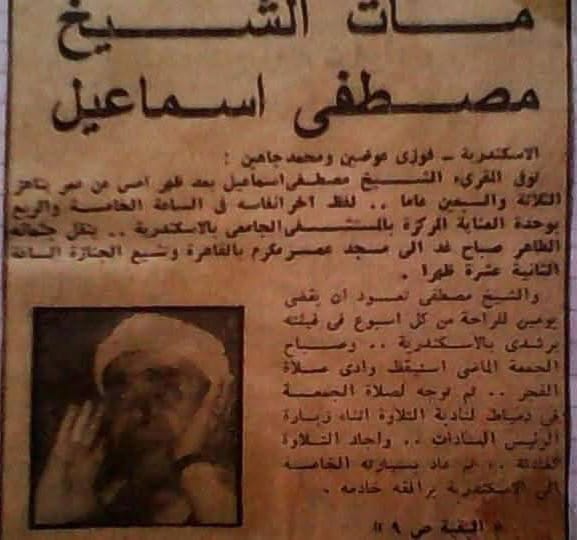 مات الشيخ
مصطفى اسماعيل
الاسكندرية - فوزى عوضين ومحمد جاهين :
توفى المقرىء الشيخ مصطفى اسماعيل بعد ظهر امس عن عمر يناهز
الثلاثة والسبعين عاما .. لفظ اخر انفاسه فى الساعة الخامسة والربع
بوحدة العناية المركزة بالمستشفى الجامعى بالاسكندرية .. ينقل جثمانه
الطاهر صباح غد الى مسجد عمر مكرم بالقاهرة وتشيع الجنازة الساعة
الثانية عشرة ظهرا .
والشيخ مصطفى تعود ان يقضى
يومين للراحة من كل اسبوع فى فيلته
برشدى بالاسكندرية .. وصباح
الجمعة الماضى استيقظ وادى صلاة
الفجر .. ثم توجه لصلاة الجمعة
فى دمياط لتادية التلاوة اثناء زيارة
الرئيس السادات .. واجاد التلاوة
.. ثم عاد بسيارته الخاصة
الى الاسكندرية يرافقه خادمه .
« البقية ص ٩ »